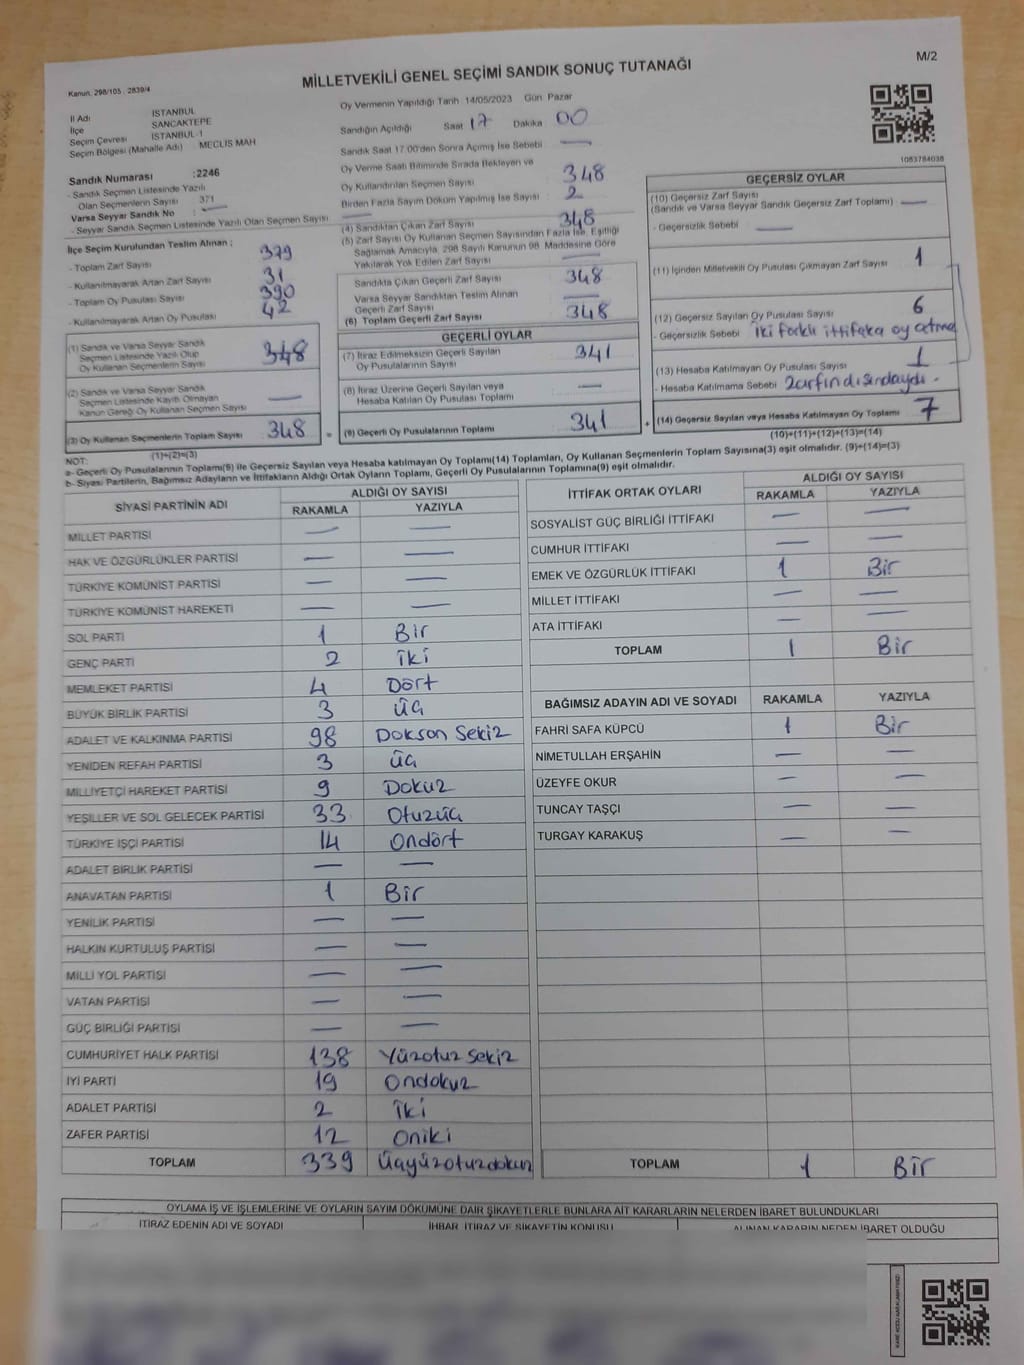 M/2
MİLLETVEKİLİ GENEL SEÇİMİ SANDIK SONUÇ TUTANAĞI
Kanun. 298/105 , 2839/4
İl Adı İSTANBUL
İlçe SANCAKTEPE
Seçim Çevresi İSTANBUL-1
Seçim Bölgesi (Mahalle Adı) MECLİS MAH
Sandık Numarası :2246
- Sandık Seçmen Listesinde Yazılı
Olan Seçmenlerin Sayısı 371
Varsa Seyyar Sandık No : —
- Seyyar Sandık Seçmen Listesinde Yazılı Olan Seçmen Sayısı —
İlçe Seçim Kurulundan Teslim Alınan ;
- Toplam Zarf Sayısı 379
- Kullanılmayarak Artan Zarf Sayısı 31
- Toplam Oy Pusulası Sayısı 390
- Kullanılmayarak Artan Oy Pusulası 42
(1) Sandık ve Varsa Seyyar Sandık
Seçmen Listesinde Yazılı Olup
Oy Kullanan Seçmenlerin Sayısı 348
(2) Sandık ve Varsa Seyyar Sandık
Seçmen Listesinde Kayıtlı Olmayan
Kanun Gereği Oy Kullanan Seçmen Sayısı —
(3) Oy Kullanan Seçmenlerin Toplam Sayısı 348
(1)+(2)=(3)
Oy Vermenin Yapıldığı Tarih 14/05/2023 Gün Pazar
Sandığın Açıldığı Saat 17 Dakika 00
Sandık Saat 17:00'den Sonra Açmış İse Sebebi —
Oy Verme Saati Bitiminde Sırada Bekleyen ve
Oy Kullandırılan Seçmen Sayısı 348
Birden Fazla Sayım Döküm Yapılmış İse Sayısı 2
(4) Sandıktan Çıkan Zarf Sayısı 348
(5) Zarf Sayısı Oy Kullanan Seçmen Sayısından Fazla İse, Eşitliği
Sağlamak Amacıyla, 298 Sayılı Kanunun 98. Maddesine Göre
Yakılarak Yok Edilen Zarf Sayısı —
Sandıkta Çıkan Geçerli Zarf Sayısı 348
Varsa Seyyar Sandıktan Teslim Alınan
Geçerli Zarf Sayısı —
(6) Toplam Geçerli Zarf Sayısı 348
GEÇERLİ OYLAR
(7) İtiraz Edilmeksizin Geçerli Sayılan
Oy Pusulalarının Sayısı 341
(8) İtiraz Üzerine Geçerli Sayılan veya
Hesaba Katılan Oy Pusulası Toplamı —
= (9) Geçerli Oy Pusulalarının Toplamı 341 +
1083784038
GEÇERSİZ OYLAR
(10) Geçersiz Zarf Sayısı
(Sandık ve Varsa Seyyar Sandık Geçersiz Zarf Toplamı) —
- Geçersizlik Sebebi —
(11) İçinden Milletvekili Oy Pusulası Çıkmayan Zarf Sayısı 1
(12) Geçersiz Sayılan Oy Pusulası Sayısı 6
- Geçersizlik Sebebi İki farklı ittifaka oy atma
(13) Hesaba Katılmayan Oy Pusulası Sayısı 1
- Hesaba Katılmama Sebebi Zarfın dışındaydı.
(14) Geçersiz Sayılan veya Hesaba Katılmayan Oy Toplamı 7
(10)+(11)+(12)+(13)=(14)
NOT:
a- Geçerli Oy Pusulalarının Toplamı(9) ile Geçersiz Sayılan veya Hesaba katılmayan Oy Toplamı(14) Toplamları, Oy Kullanan Seçmenlerin Toplam Sayısına(3) eşit olmalıdır. (9)+(14)=(3)
b- Siyasi Partilerin, Bağımsız Adayların ve İttifakların Aldığı Ortak Oyların Toplamı, Geçerli Oy Pusulalarının Toplamına(9) eşit olmalıdır.
SİYASİ PARTİNİN ADI ALDIĞI OY SAYISI
RAKAMLA YAZIYLA
MİLLET PARTİSİ — —
HAK VE ÖZGÜRLÜKLER PARTİSİ — —
TÜRKİYE KOMÜNİST PARTİSİ — —
TÜRKİYE KOMÜNİST HAREKETİ — —
SOL PARTİ 1 Bir
GENÇ PARTİ 2 İki
MEMLEKET PARTİSİ 4 Dört
BÜYÜK BİRLİK PARTİSİ 3 Üç
ADALET VE KALKINMA PARTİSİ 98 Dokson Sekiz
YENİDEN REFAH PARTİSİ 3 Üç
MİLLİYETÇİ HAREKET PARTİSİ 9 Dokuz
YEŞİLLER VE SOL GELECEK PARTİSİ 33 Otuzüç
TÜRKİYE İŞÇİ PARTİSİ 14 Ondört
ADALET BİRLİK PARTİSİ — —
ANAVATAN PARTİSİ 1 Bir
YENİLİK PARTİSİ — —
HALKIN KURTULUŞ PARTİSİ — —
MİLLİ YOL PARTİSİ — —
VATAN PARTİSİ — —
GÜÇ BİRLİĞİ PARTİSİ — —
CUMHURİYET HALK PARTİSİ 138 Yüzotuz sekiz
İYİ PARTİ 19 Ondokuz
ADALET PARTİSİ 2 İki
ZAFER PARTİSİ 12 Oniki
TOPLAM 339 Üçyüzotuzdokuz
İTTİFAK ORTAK OYLARI ALDIĞI OY SAYISI
RAKAMLA YAZIYLA
SOSYALİST GÜÇ BİRLİĞİ İTTİFAKI — —
CUMHUR İTTİFAKI — —
EMEK VE ÖZGÜRLÜK İTTİFAKI 1 Bir
MİLLET İTTİFAKI — —
ATA İTTİFAKI — —
TOPLAM 1 Bir
BAĞIMSIZ ADAYIN ADI VE SOYADI RAKAMLA YAZIYLA
FAHRİ SAFA KÜPCÜ 1 Bir
NİMETULLAH ERŞAHİN — —
ÜZEYFE OKUR — —
TUNCAY TAŞÇI — —
TURGAY KARAKUŞ — —
TOPLAM 1 Bir
OYLAMA İŞ VE İŞLEMLERİNE VE OYLARIN SAYIM DÖKÜMÜNE DAİR ŞİKAYETLERLE BUNLARA AİT KARARLARIN NELERDEN İBARET BULUNDUKLARI
İTİRAZ EDENİN ADI VE SOYADI İHBAR, İTİRAZ VE ŞİKAYETİN KONUSU ALINAN KARARIN NEDEN İBARET OLDUĞU